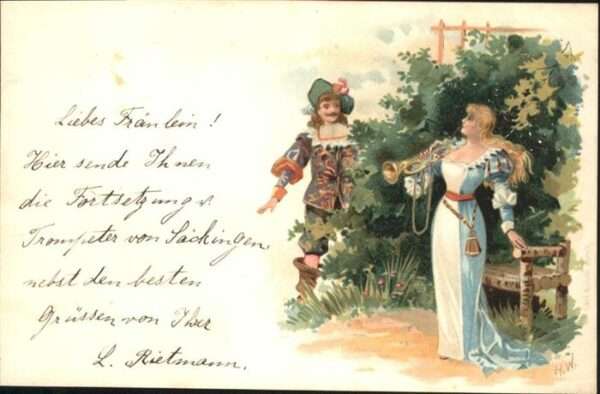 Liebes Fräulein!
Hier sende Ihnen
die Fortsetzung v.
Trompeter von Säckingen
nebst den besten
Grüssen von Ihrer
L. Rietmann.
H.W.